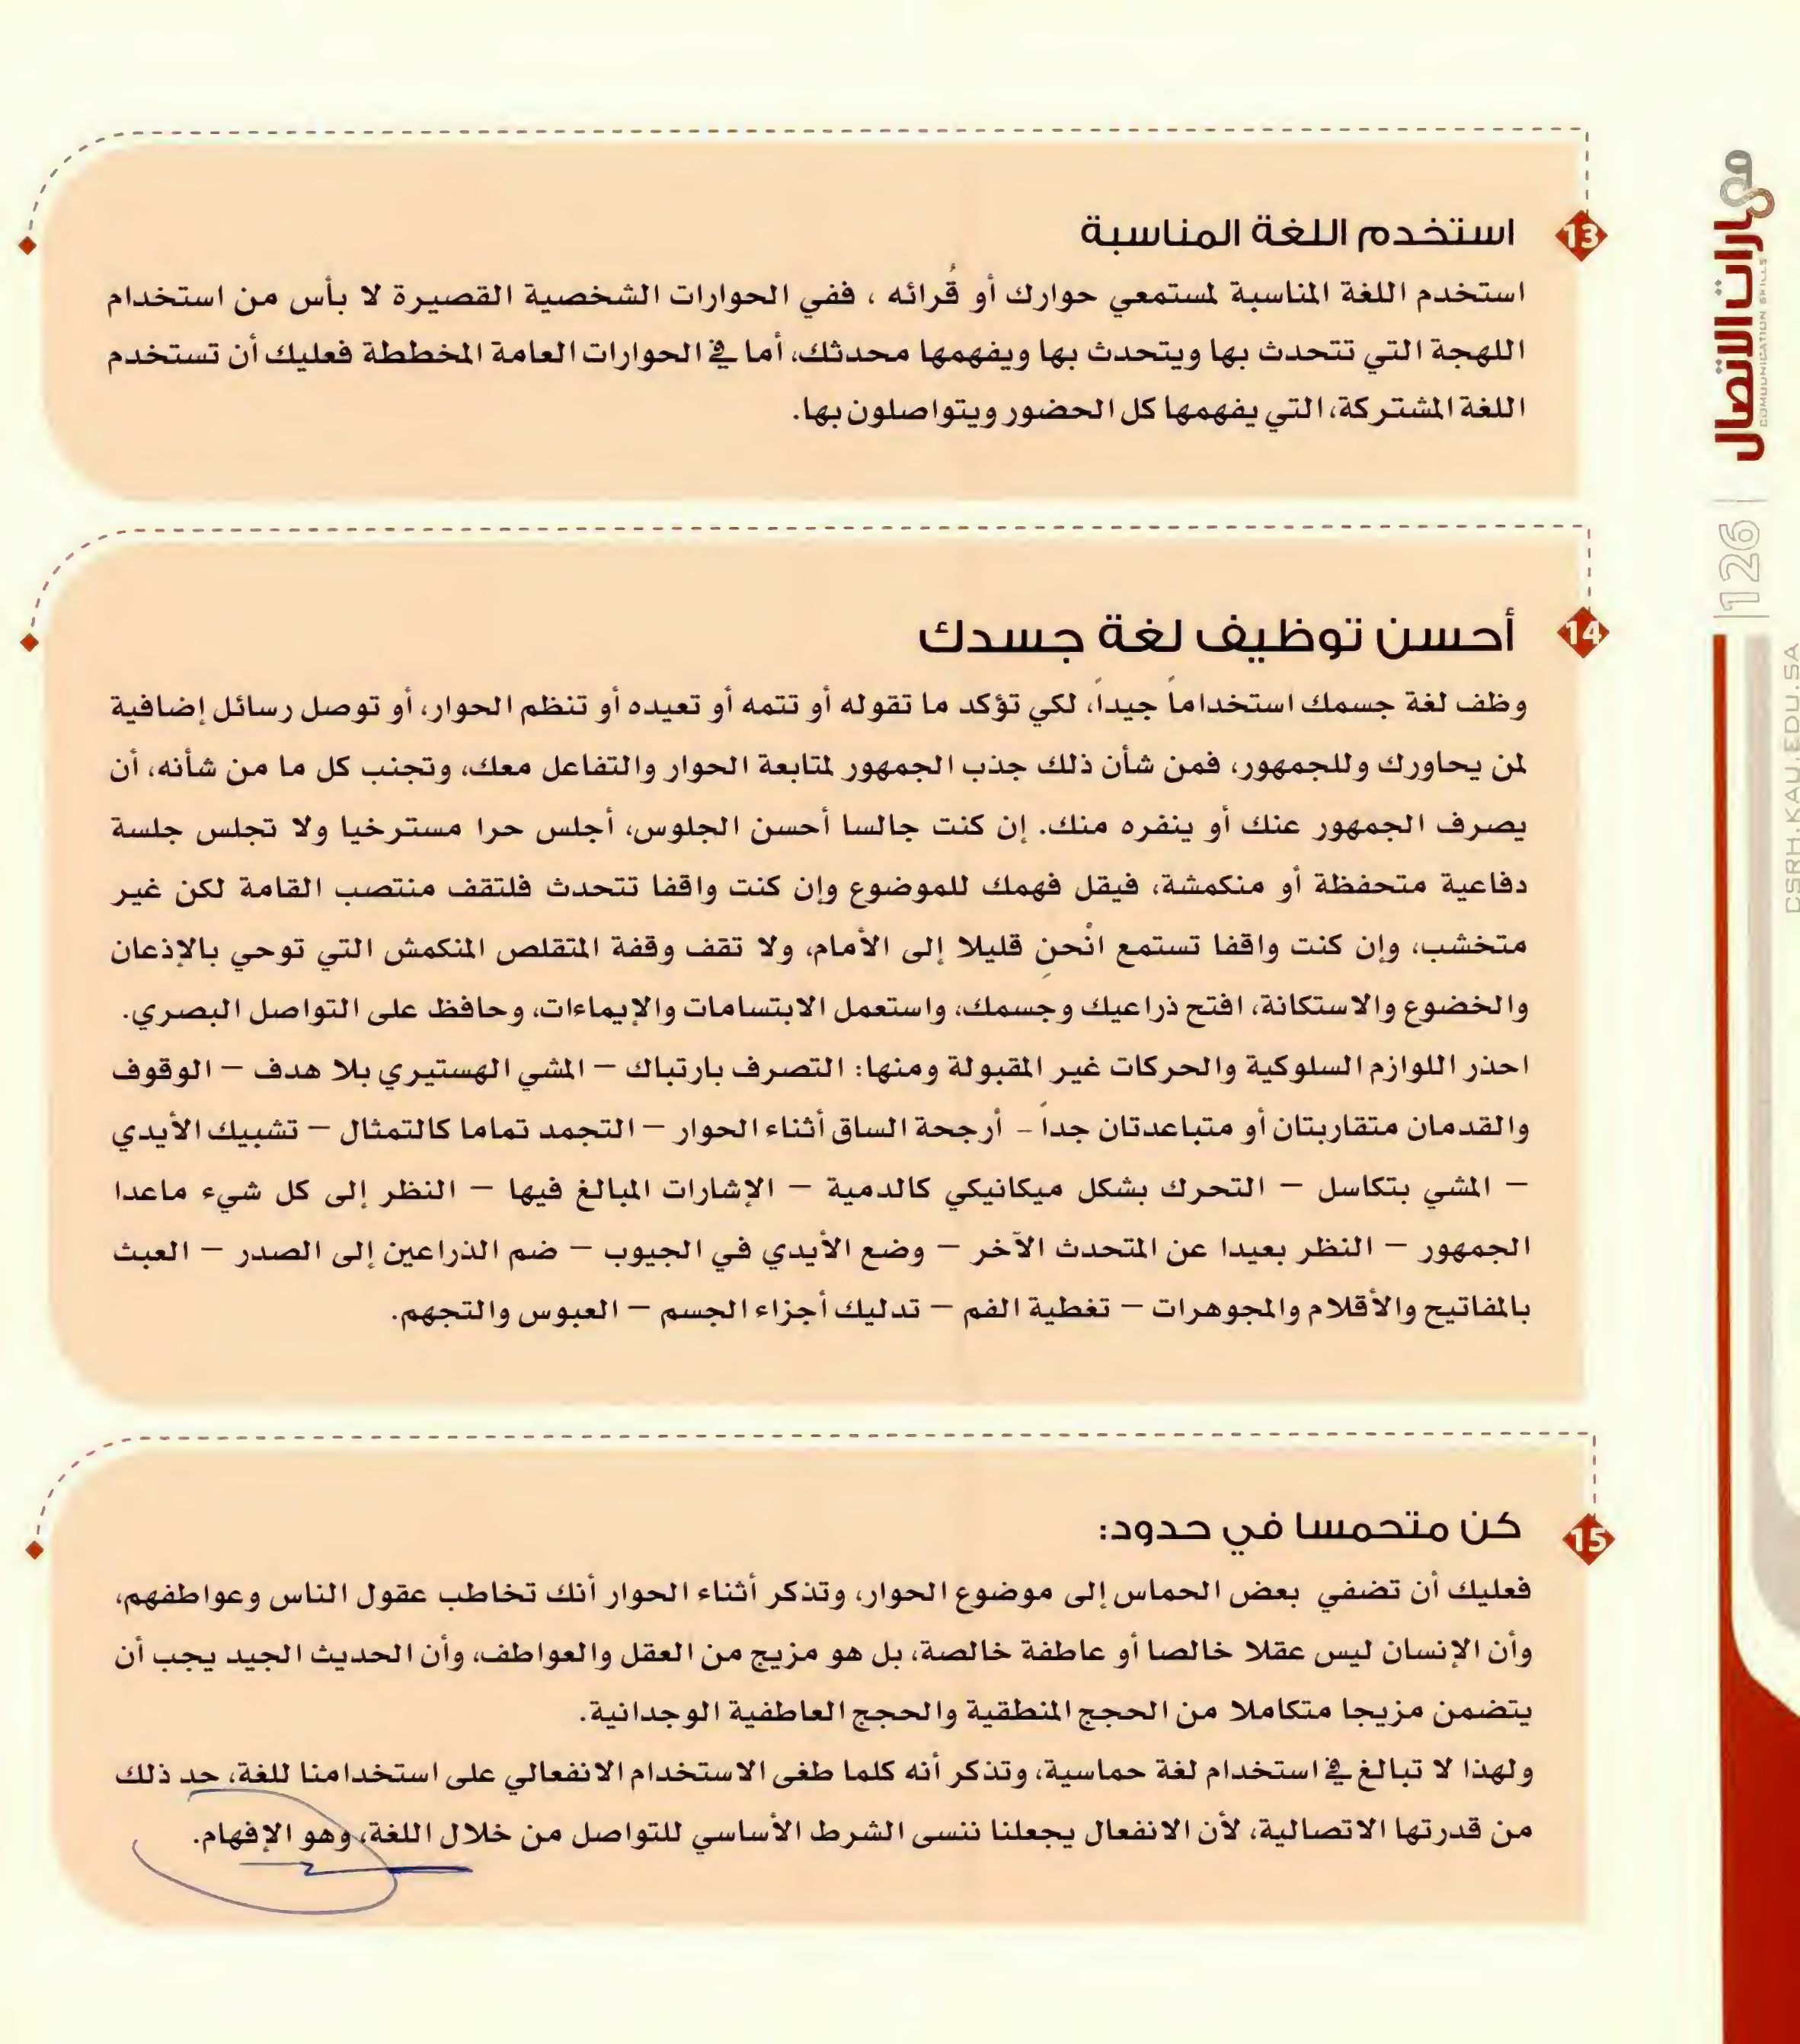 13
استخدم اللغة المناسبة
استخدم اللغة المناسبة لمستمعي حوارك أو قُرائه ، ففي الحوارات الشخصية القصيرة لا بأس من استخدام
اللهجة التي تتحدث بها ويتحدث بها ويفهمها محدثك، أما في الحوارات العامة المخططة فعليك أن تستخدم
اللغة المشتركة، التي يفهمها كل الحضور ويتواصلون بها.
14
أحسن توظيف لغة جسدك
وظف لغة جسمك استخداماً جيداً، لكي تؤكد ما تقوله أو تتمه أو تعيده أو تنظم الحوار، أو توصل رسائل إضافية
لمن يحاورك وللجمهور، فمن شأن ذلك جذب الجمهور لمتابعة الحوار والتفاعل معك، وتجنب كل ما من شأنه، أن
يصرف الجمهور عنك أو ينفره منك. إن كنت جالسا أحسن الجلوس، أجلس حرا مسترخيا ولا تجلس جلسة
دفاعية متحفظة أو منكمشة، فيقل فهمك للموضوع وإن كنت واقفا تتحدث فلتقف منتصب القامة لكن غير
متخشب، وإن كنت واقفا تستمع انْحنِ قليلا إلى الأمام، ولا تقف وقفة المتقلص المنكمش التي توحي بالإذعان
والخضوع والاستكانة، افتح ذراعيك وجسمك، واستعمل الابتسامات والإيماءات، وحافظ على التواصل البصري.
احذر اللوازم السلوكية والحركات غير المقبولة ومنها: التصرف بارتباك – المشي الهستيري بلا هدف – الوقوف
والقدمان متقاربتان أو متباعدتان جداً - أرجحة الساق أثناء الحوار – التجمد تماما كالتمثال – تشبيك الأيدي
– المشي بتكاسل – التحرك بشكل ميكانيكي كالدمية – الإشارات المبالغ فيها – النظر إلى كل شيء ماعدا
الجمهور – النظر بعيدا عن المتحدث الآخر – وضع الأيدي في الجيوب – ضم الذراعين إلى الصدر – العبث
بالمفاتيح والأقلام والمجوهرات – تغطية الفم – تدليك أجزاء الجسم – العبوس والتجهم.
15
كن متحمسا في حدود:
فعليك أن تضفي بعض الحماس إلى موضوع الحوار، وتذكر أثناء الحوار أنك تخاطب عقول الناس وعواطفهم،
وأن الإنسان ليس عقلا خالصا أو عاطفة خالصة، بل هو مزيج من العقل والعواطف، وأن الحديث الجيد يجب أن
يتضمن مزيجا متكاملا من الحجج المنطقية والحجج العاطفية الوجدانية.
ولهذا لا تبالغ في استخدام لغة حماسية، وتذكر أنه كلما طغى الاستخدام الانفعالي على استخدامنا للغة، حد ذلك
من قدرتها الاتصالية، لأن الانفعال يجعلنا ننسى الشرط الأساسي للتواصل من خلال اللغة، وهو الإفهام.
مهارات الاتصال
COMMUNICATION SKILLS
126
CSRH.KAU.EDU.SA